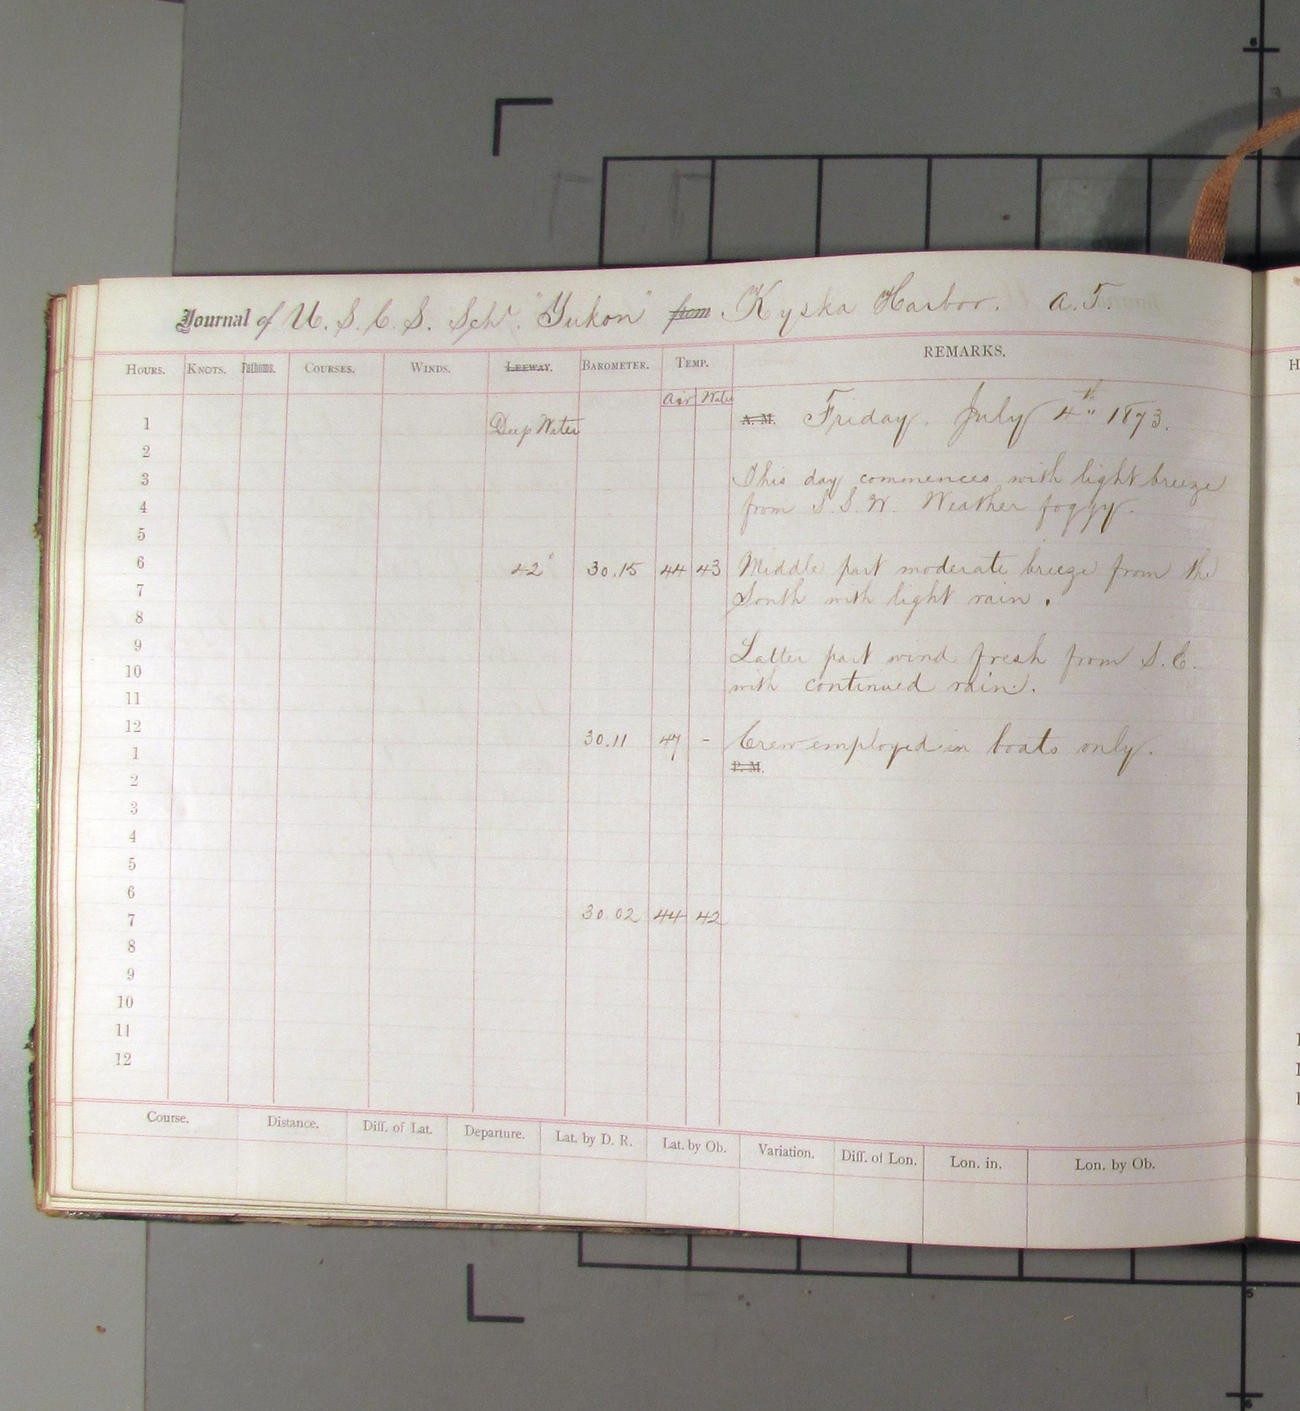 Journal of U. S. C. S. Schr. "Yukon" from Kyska Harbor. A. T.
HOURS. KNOTS. Fathoms. COURSES. WINDS. LEEWAY. BAROMETER. TEMP. REMARKS.
Air Water
1 Deep Water A. M. Friday. July 4th 1873.
2
3 This day commences with light breeze
4 from S. S. W. Weather foggy.
5
6 42° 30.15 44 43 Middle part moderate breeze from the
7 South with light rain.
8
9 Latter part wind fresh from S. E.
10 with continued rain.
11
12 30.11 47 - Crew employed in boats only.
1 P. M.
2
3
4
5
6
7 30.02 44 42
8
9
10
11
12
Course. Distance. Diff. of Lat. Departure. Lat. by D. R. Lat. by Ob. Variation. Diff. of Lon. Lon. in. Lon. by Ob.